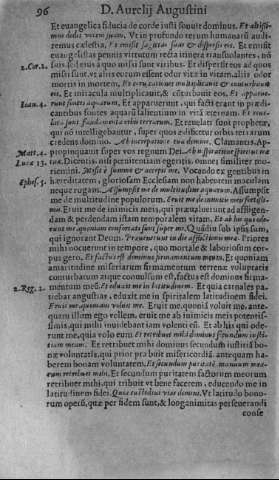 96 D. Aurelij Augustini
Et euangelica fiducia de corde iusti sonuit dominus. Et altissi-
mus dedit vocem suam. Vt in profundo rerum humanarū audi-
remus cælestia. Et emisit sagittas suas & dispersit eos. Et emisit
euangelistas pennis virtutum recta itinera transuolantes, nō
2. Cor. 2. suis, sed eius a quo missi sunt viribus. Et dispersit eos ad quos
missi sunt, vt aliis eorum essent odor vitæ in vitam, aliis odor
mortis in mortem. Et
eos. Et miracula multiplicauit, & conturbauit eos. Et
Ioan. 4. aquarum. Et apparuerunt, qui facti erant in prædi-
cantibus fontes aquæ salientis in vitā æternam. Et
fundamenta orbis terrarum.
Et reuelati sunt prophetæ,
qui nō intelligebantur, super quos ædificetur orbis terrarum
credens domino. Ab increpatione tua domine. Clamantis, Ap-
Matt. 4. propinquauit super vos regnum Dei. Ab
Luc. 13. tuæ. Dicentis, nisi pœnitentiam egeritis, omnes similiter mo-
riemini. Misit de summo & accepit me. Vocando ex gentibus in
Ephes. 5. hæreditatem, gloriosam Ecclesiam non habentem maculam
neque rugam. Assumpsit me de multitudine aquarum. Assumpsit
me de multitudine populorum. Eruit me de inimicis meis fortissi-
mis. Eruit me de inimicis meis, qui præualuerunt ad affligen-
dam & perdendam istam temporalem vitam. Et ab his qui ode-
runt me, quoniam confortati sunt super me. Quamdiu sub ipsis sum,
qui ignorant Deum. Præuenerunt me in die afflictionis meæ. Priores
mihi nocuerunt in tempore, quo mortale & laboriosum cor-
pus gero. Et factus est dominus firmamentum meum. Et quoniam
amaritudine miseriarum firmamentum terrenæ voluptatis
conturbatum atque conuulsum est, factus est dominus firma-
2. Reg. 2. mentum meū. Et eduxit me in latitudinem. Et quia carnales pa-
tiebar angustias, eduxit me in spiritalem latitudinem fidei.
Eruit me, quoniam voluit me. Eruit me, quoniā voluit me, ante-
quam illum ego vellem, eruit me ab inimicis meis potentis-
simis, qui mihi inuidebant iam volenti eū. Et ab his qui ode-
runt me, quia volo eum. Et retribuet mihi dominus secundum iusti-
tiam meam. Et retribuet mihi dominus secundū iustitiā bo-
næ voluntatis, qui prior præbuit misericordiā, antequam ha-
berem bonam voluntatem. Et secundum puritatē manuum mea-
rum retribuet mihi. Et secundum puritatem factorum meorum
retribuet mihi, qui tribuit vt bene facerem, educendo me in
latitudinem fidei. Quia custodiui vias domini. Vt latitudo bono-
rum operū, quæ per fidem sunt, & longanimitas perseuerandi
conse